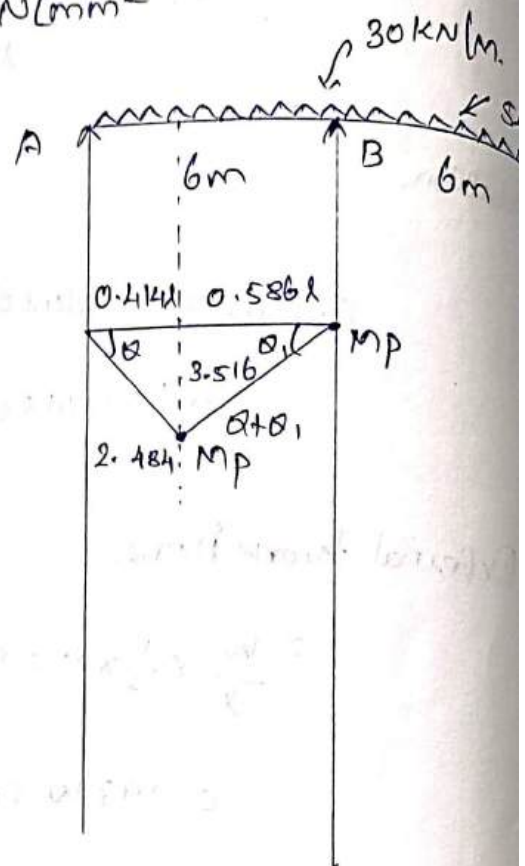 N/mm²
30 KN/m.
A
B
6m
6m
0.414l 0.586l
θ
θ₁
Mp
3.516
θ+θ₁
2.484
Mp